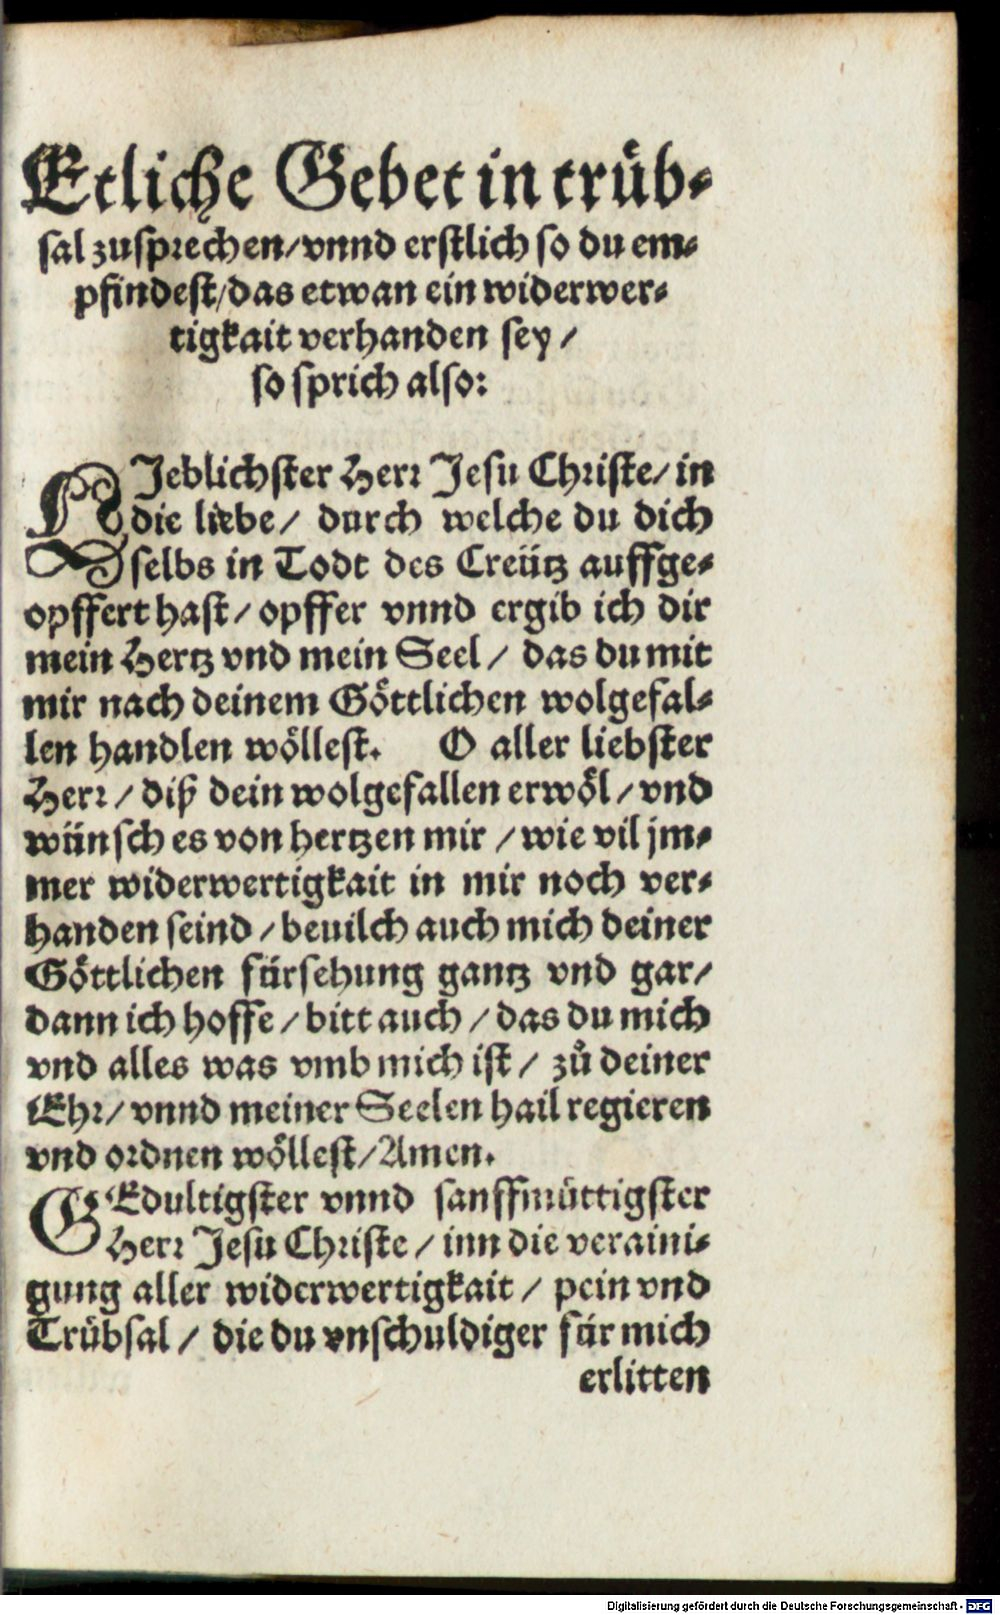 Etliche Gebet in trüb-
sal zusprechen/vnnd erstlich so du em-
pfindest/das etwan ein widerwer-
tigkait verhanden sey/
so sprich also:
LIeblichster Herr Jesu Christe/in
die liebe/ durch welche du dich
selbs in Todt des Creütz auffge-
opffert hast/ opffer vnnd ergib ich dir
mein Hertz vnd mein Seel/ das du mit
mir nach deinem Göttlichen wolgefal-
len handlen wöllest. O aller liebster
Herr/ diß dein wolgefallen erwöl/ vnd
wünsch es von hertzen mir/ wie vil jm-
mer widerwertigkait in mir noch ver-
handen seind/ beuilch auch mich deiner
Göttlichen fürsehung gantz vnd gar/
dann ich hoffe/ bitt auch/ das du mich
vnd alles was vmb mich ist/ zů deiner
Ehr/ vnnd meiner Seelen hail regieren
vnd ordnen wöllest/Amen.
GEdultigster vnnd sanffmüttigster
Herr Jesu Christe/ inn die veraini-
gung aller widerwertigkait/ pein vnd
Trübsal/ die du vnschuldiger für mich
erlitten
Digitalisierung gefördert durch die Deutsche Forschungsgemeinschaft - DFG